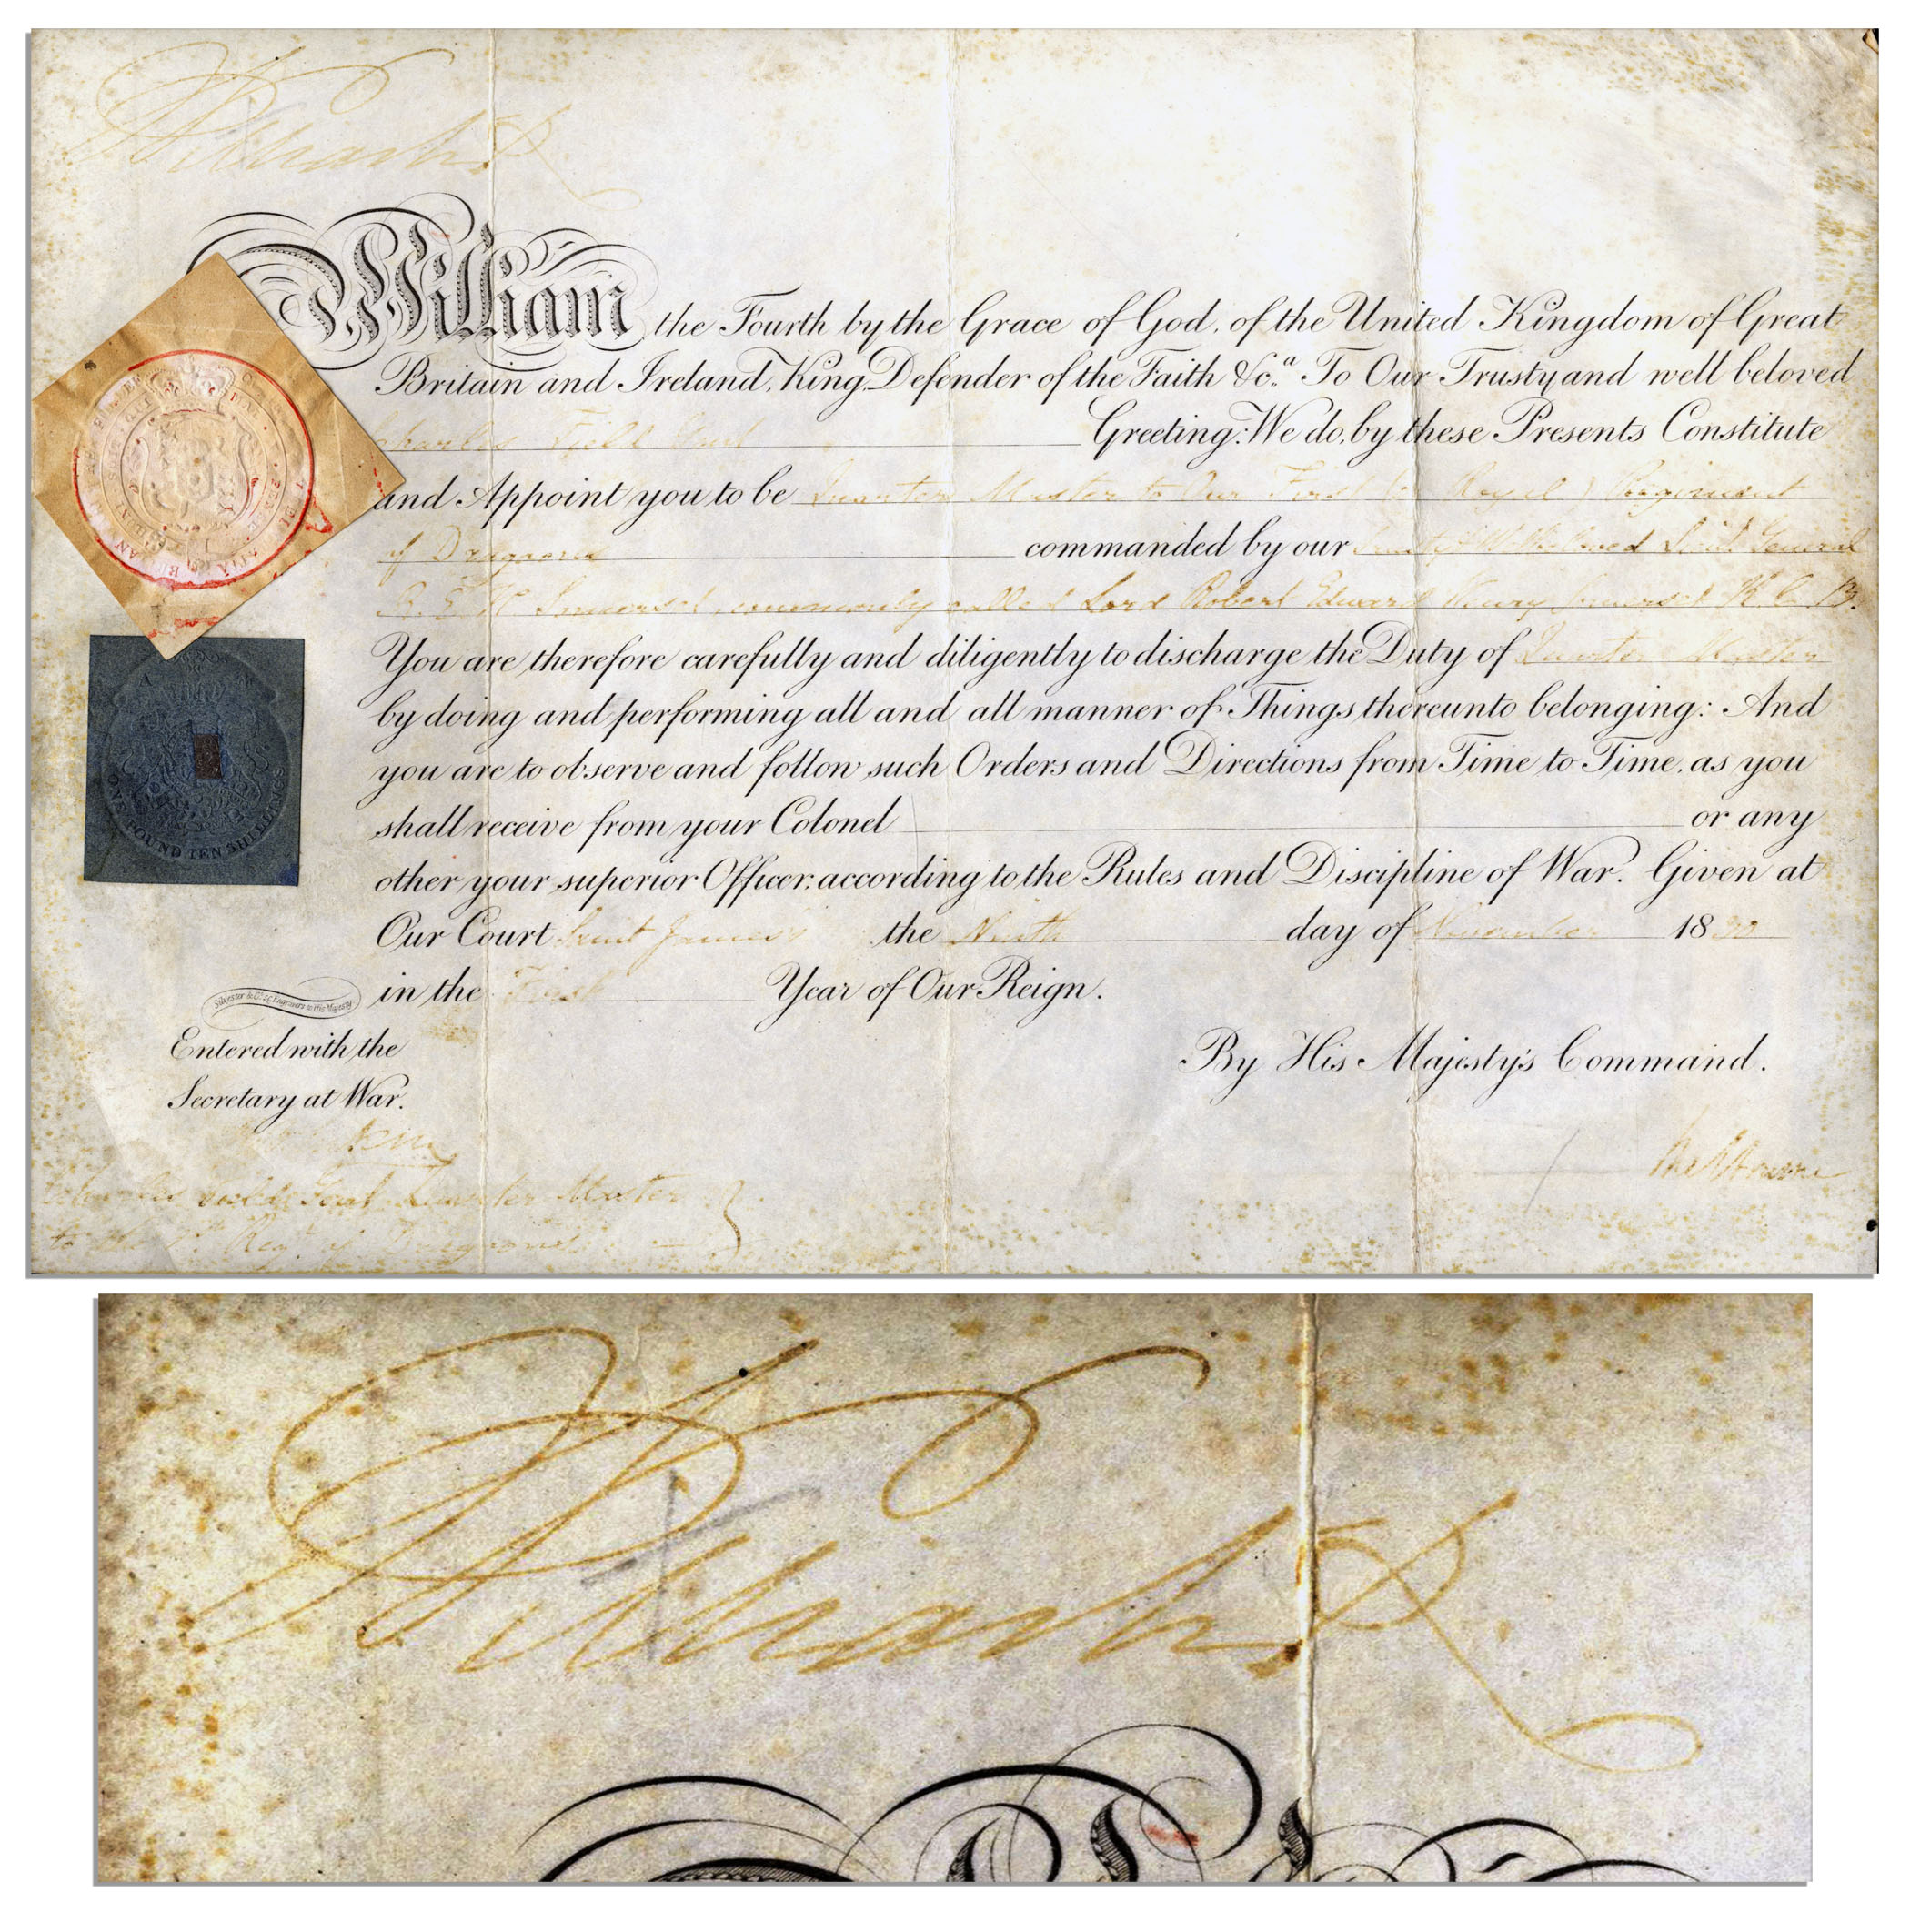 William R
William the Fourth by the Grace of God, of the United Kingdom of Great
Britain and Ireland, King, Defender of the Faith &c.a To Our Trusty and well beloved
Charles Field Greeting: We do, by these Presents Constitute
and Appoint you to be Quarter Master to Our First (or Royal) Regiment
of Dragoons commanded by our Trusty & Wellbeloved Lieut General
R. E. H. Somerset, commonly called Lord Robert Edward Henry Somerset K.C.B.
You are therefore carefully and diligently to discharge the Duty of Quarter Master
by doing and performing all and all manner of Things thereunto belonging: And
you are to observe and follow such Orders and Directions from Time to Time, as you
shall receive from your Colonel or any
other your superior Officer; according to the Rules and Discipline of War. Given at
Our Court Saint James's the Ninth day of November 1830
in the First Year of Our Reign.
Silvester & Co. Engravers to His Majesty
Entered with the
Secretary at War.
By His Majesty's Command.
Melbourne
Charles Field Quarter Master
to the 1st Regt. of Dragoons
ONE POUND TEN SHILLINGS
William R